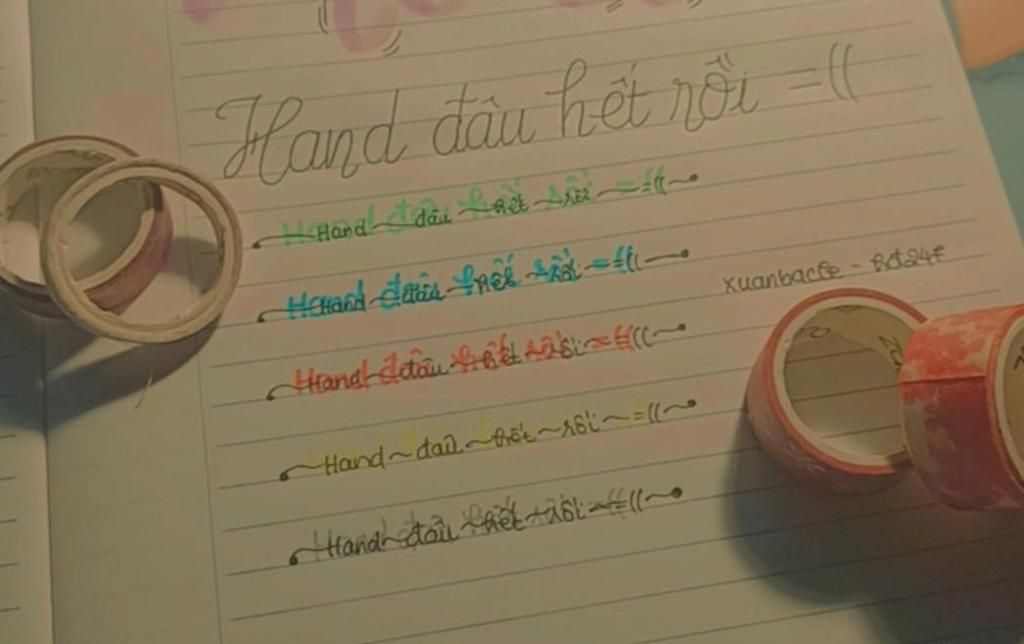 Hand đâu hết rồi =((
Hand ~ đâu ~ hết ~ rồi ~ =((~
Hand ~ đâu ~ hết ~ rồi ~ =((~
Hand ~ đâu ~ hết ~ rồi ~ =((~
Hand ~ đâu ~ hết ~ rồi ~ =((~
Hand ~ đâu ~ hết ~ rồi ~ =((~